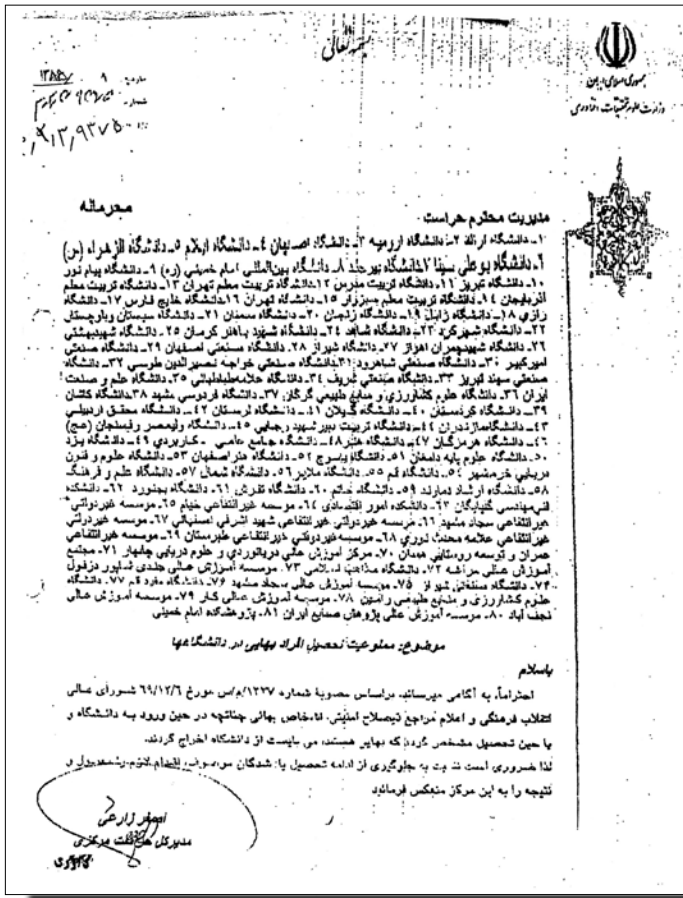 بسمه تعالی
جمهوری اسلامی ایران
وزارت علوم، تحقیقات و فناوری
محرمانه
مدیریت محترم حراست
۱ـ دانشگاه اراک ۲ـ دانشگاه ارومیه ۳ـ دانشگاه اصفهان ۴ـ دانشگاه ایلام ۵ـ دانشگاه الزهراء (س)
۶ـ دانشگاه بوعلی سینا ۷ـ دانشگاه بیرجند ۸ـ دانشگاه بین‌المللی امام خمینی (ره) ۹ـ دانشگاه پیام نور
۱۰ـ دانشگاه تبریز ۱۱ـ دانشگاه تربیت مدرس ۱۲ـ دانشگاه تربیت معلم تهران ۱۳ـ دانشگاه تربیت معلم
آذربایجان ۱۴ـ دانشگاه تربیت معلم سبزوار ۱۵ـ دانشگاه تهران ۱۶ـ دانشگاه خلیج فارس ۱۷ـ دانشگاه
رازی ۱۸ـ دانشگاه زابل ۱۹ـ دانشگاه زنجان ۲۰ـ دانشگاه سمنان ۲۱ـ دانشگاه سیستان وبلوچستان
۲۲ـ دانشگاه شهرکرد ۲۳ـ دانشگاه شاهد ۲۴ـ دانشگاه شهید باهنر کرمان ۲۵ـ دانشگاه شهیدبهشتی
۲۶ـ دانشگاه شهیدچمران اهواز ۲۷ـ دانشگاه شیراز ۲۸ـ دانشگاه صنعتی اصفهان ۲۹ـ دانشگاه صنعتی
امیرکبیر ۳۰ـ دانشگاه صنعتی شاهرود ۳۱ـ دانشگاه صنعتی خواجه نصیرالدین طوسی ۳۲ـ دانشگاه
صنعتی سهند تبریز ۳۳ـ دانشگاه صنعتی شریف ۳۴ـ دانشگاه علامه‌طباطبائی ۳۵ـ دانشگاه علم و صنعت
ایران ۳۶ـ دانشگاه علوم کشاورزی و منابع طبیعی گرگان ۳۷ـ دانشگاه فردوسی مشهد ۳۸ـ دانشگاه کاشان
۳۹ـ دانشگاه کردستان ۴۰ـ دانشگاه گیلان ۴۱ـ دانشگاه لرستان ۴۲ـ دانشگاه محقق اردبیلی
۴۳ـ دانشگاه مازندران ۴۴ـ دانشگاه تربیت دبیر شهید رجایی ۴۵ـ دانشگاه ولیعصر رفسنجان (عج)
۴۶ـ دانشگاه هرمزگان ۴۷ـ دانشگاه هنر ۴۸ـ دانشگاه جامع علمی ـ کاربردی ۴۹ـ دانشگاه یزد
۵۰ـ دانشگاه علوم پایه دامغان ۵۱ـ دانشگاه یاسوج ۵۲ـ دانشگاه هنر اصفهان ۵۳ـ دانشگاه علوم و فنون
دریایی خرمشهر ۵۴ـ دانشگاه قم ۵۵ـ دانشگاه ملایر ۵۶ـ دانشگاه شمال ۵۷ـ دانشگاه علم و فرهنگ
۵۸ـ دانشگاه ارشاد دماوند ۵۹ـ دانشگاه خاتم ۶۰ـ دانشگاه تفرش ۶۱ـ دانشگاه بجنورد ۶۲ـ دانشکده
فنی‌مهندسی گلپایگان ۶۳ـ دانشکده امور اقتصادی ۶۴ـ موسسه غیرانتفاعی خیام ۶۵ـ موسسه غیردولتی
غیرانتفاعی سجاد مشهد ۶۶ـ موسسه غیردولتی غیرانتفاعی شهید اشرفی اصفهانی ۶۷ـ موسسه غیردولتی
غیرانتفاعی علامه محدث نوری ۶۸ـ موسسه غیردولتی غیرانتفاعی طبرستان ۶۹ـ موسسه غیرانتفاعی
عمران و توسعه روستایی همدان ۷۰ـ مرکز آموزش عالی دریانوردی و علوم دریایی چابهار ۷۱ـ مجتمع
آموزش عالی مراغه ۷۲ـ دانشگاه مذاهب اسلامی ۷۳ـ موسسه آموزش عالی جندی شاپور دزفول
۷۴ـ دانشگاه صنعتی شیراز ۷۵ـ موسسه آموزش عالی سجاد مشهد ۷۶ـ دانشگاه مفید قم ۷۷ـ دانشگاه
علوم کشاورزی و منابع طبیعی رامین ۷۸ـ موسسه آموزش عالی کار ۷۹ـ موسسه آموزش عالی
نجف آباد ۸۰ـ موسسه آموزش عالی پژوهش صنایع ایران ۸۱ـ پژوهشکده امام خمینی
موضوع: ممنوعیت تحصیل افراد بهایی در دانشگاهها
باسلام
احتراماً، به آگاهی میرساند، براساس مصوبة شماره ۱۳۲۷/م/س مورخ ۶۹/۱۲/۶ شورای عالی
انقلاب فرهنگی و اعلام مراجع ذیصلاح امنیتی، اشخاص بهائی چنانچه در حین ورود به دانشگاه و
یا حین تحصیل مشخص گردد که بهایی هستند، می بایست از دانشگاه اخراج گردند.
لذا ضروری است نسبت به جلوگیری از ادامه تحصیل یاد شدگان موصوف، اقدام لازم مبذول و
نتیجه را به این مرکز منعکس فرمائید
اصغر زارعی
مدیرکل حراست مرکزی